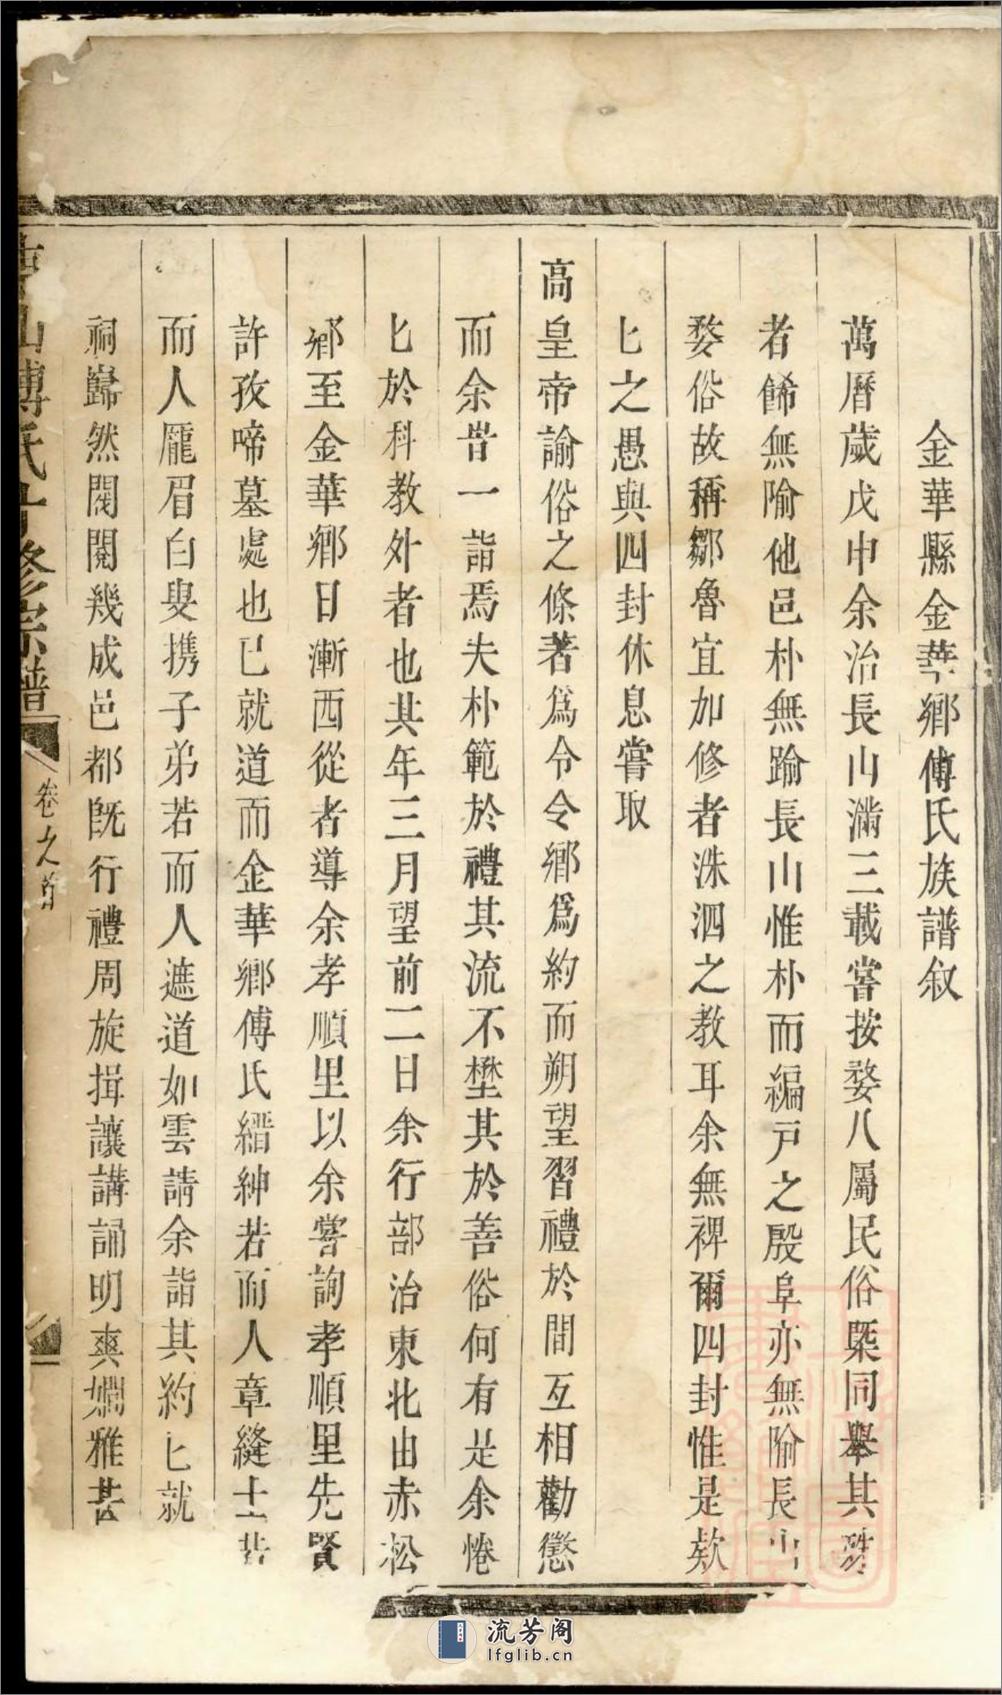 金華縣金華鄉傅氏族譜叙
萬曆歲戊申余治長山滿三載嘗按婺八屬民俗槩同舉其殊
者餙無隃他邑朴無踰長山惟朴而編戸之殷阜亦無隃長山
婺俗故稱鄒魯宜加修者洙泗之教耳余無裨爾四封惟是欵
匕之愚與四封休息嘗取
高皇帝諭俗之條著爲令令鄉爲約而朔望習禮於間互相勸懲
而余昔一詣焉夫朴範於禮其流不樊其於善俗何有是余惓
匕於科教外者也其年三月望前二日余行部治東北由赤松
鄉至金華鄉日漸西從者導余孝順里以余嘗詢孝順里先賢
許孜啼墓處也已就道而金華鄉傅氏縉紳若而人章縫士若
而人龐眉白叟携子弟若而人遮道如雲請余詣其約匕就
祠巋然閥閱幾成邑都旣行禮周旋揖讓講誦明爽嫺雅甚
山傅氏十修宗譜
卷之首
流芳阁
lfglib.cn